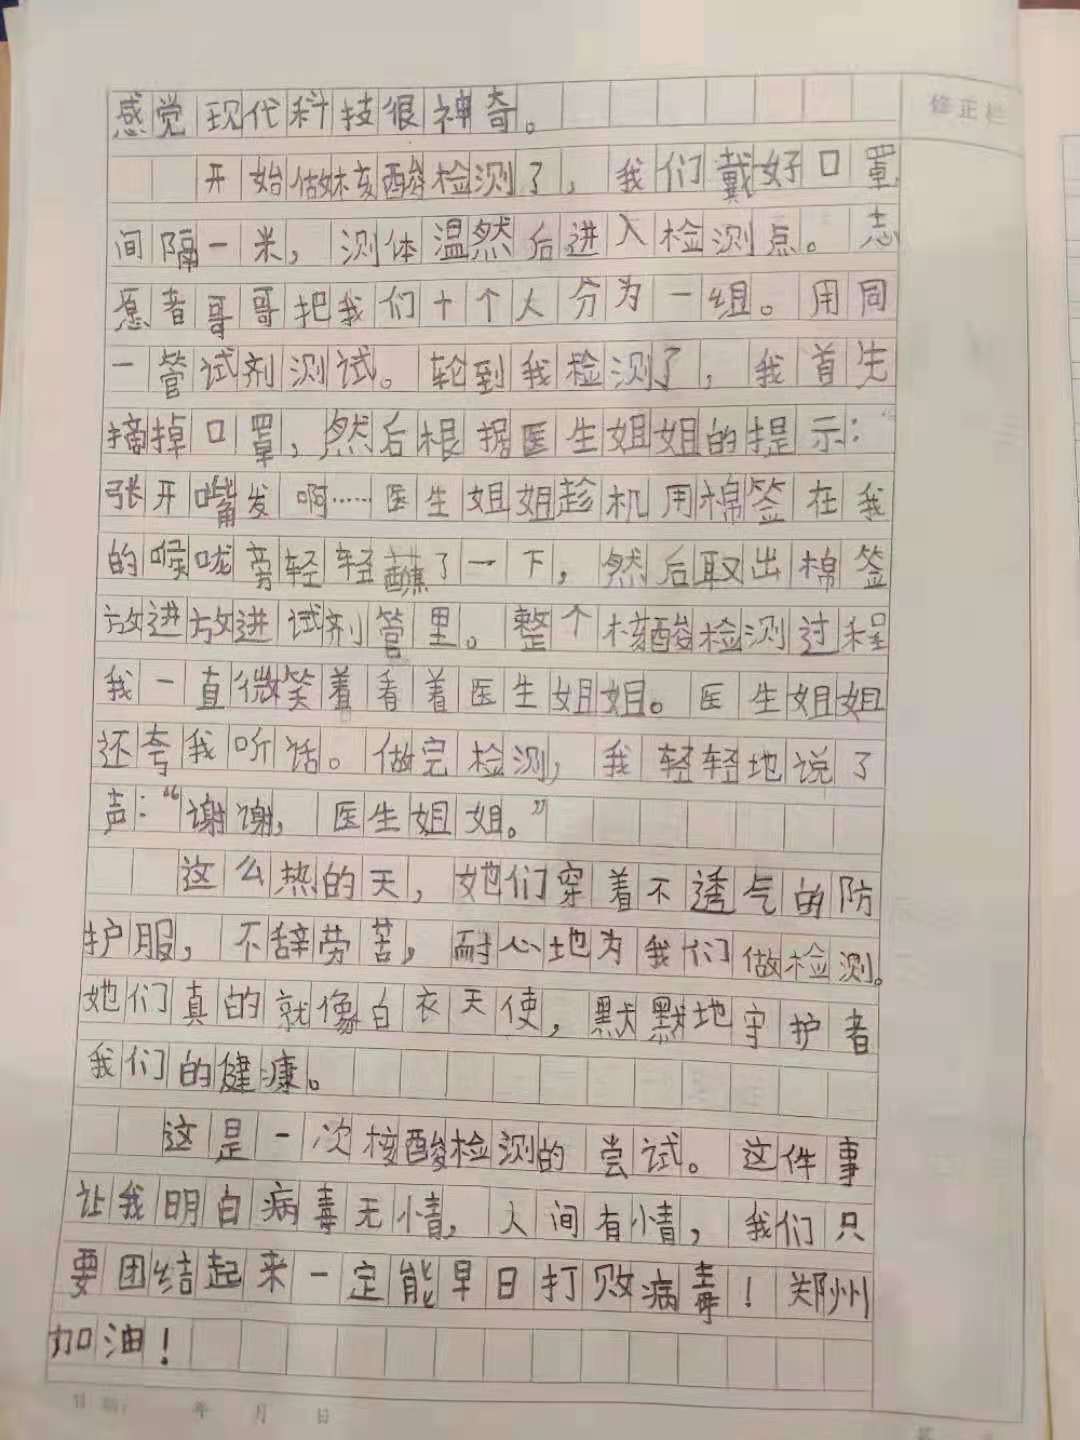 修正栏
感觉现代科技很神奇。
开始做核酸检测了，我们戴好口罩
间隔一米，测体温然后进入检测点。志
愿者哥哥把我们十个人分为一组。用同
一管试剂测试。轮到我检测了，我首先
摘掉口罩，然后根据医生姐姐的提示：“
张开嘴发啊……医生姐姐趁机用棉签在我
的喉咙旁轻轻蘸了一下，然后取出棉签
放进放进试剂管里。整个核酸检测过程
我一直微笑着看着医生姐姐。医生姐姐
还夸我听话。做完检测，我轻轻地说了
声：“谢谢，医生姐姐。”
这么热的天，她们穿着不透气的防
护服，不辞劳苦，耐心地为我们做检测。
她们真的就像白衣天使，默默地守护者
我们的健康。
这是一次核酸检测的尝试。这件事
让我明白病毒无情，人间有情，我们只
要团结起来一定能早日打败病毒！郑州
加油！
年 月 日